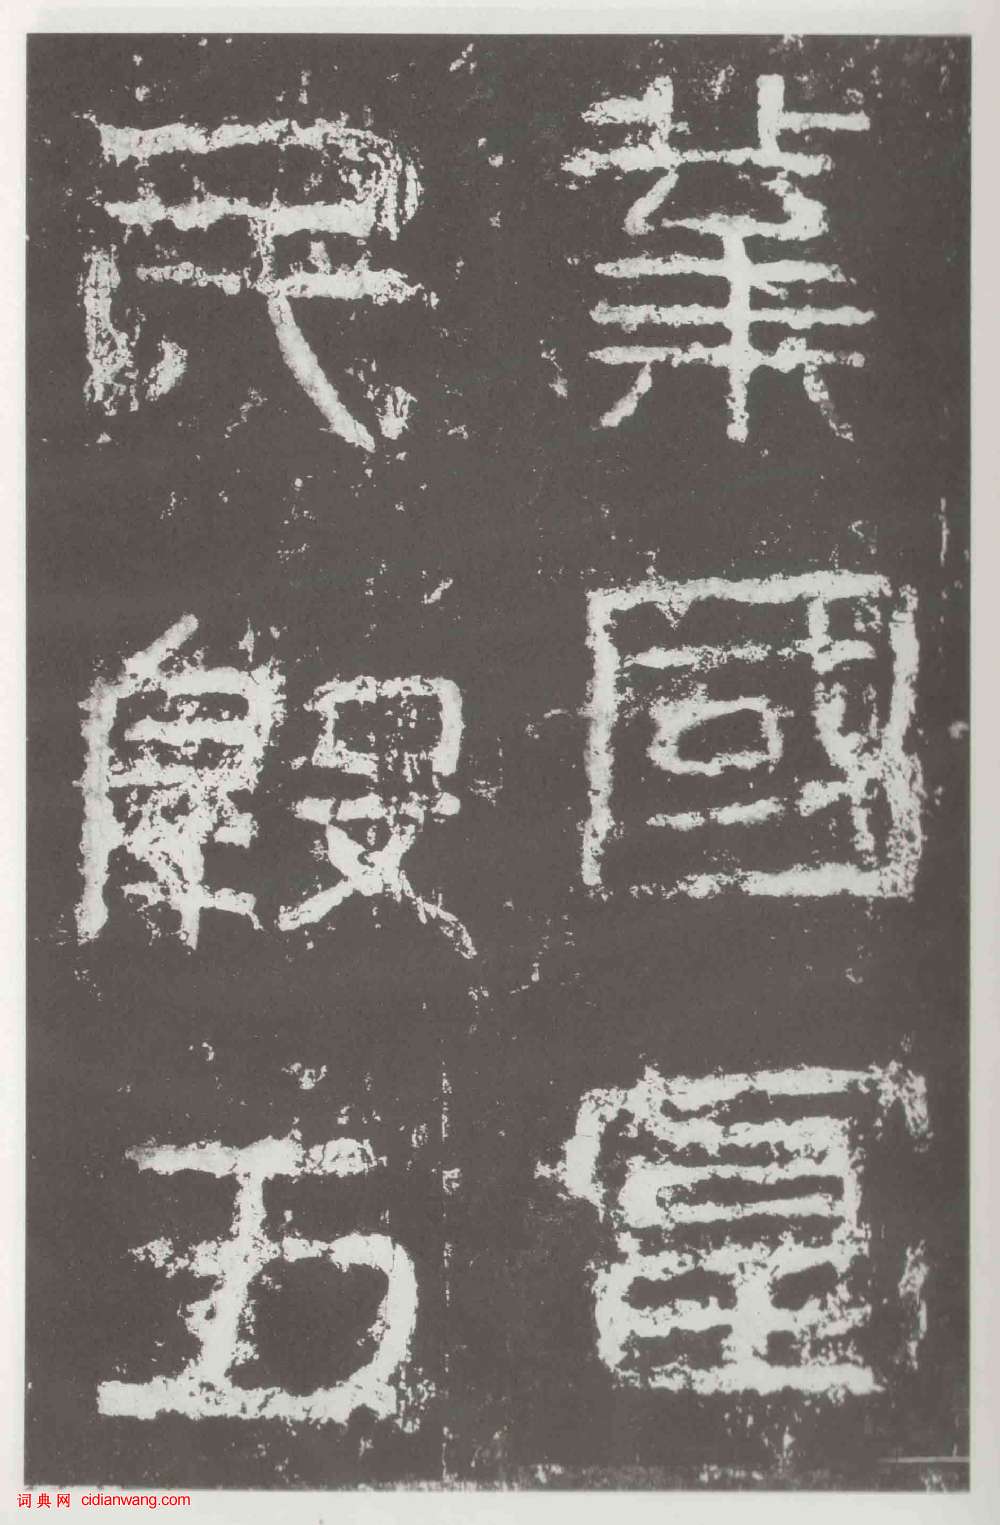 業國富
民殷五
词典网 cidianwang.com